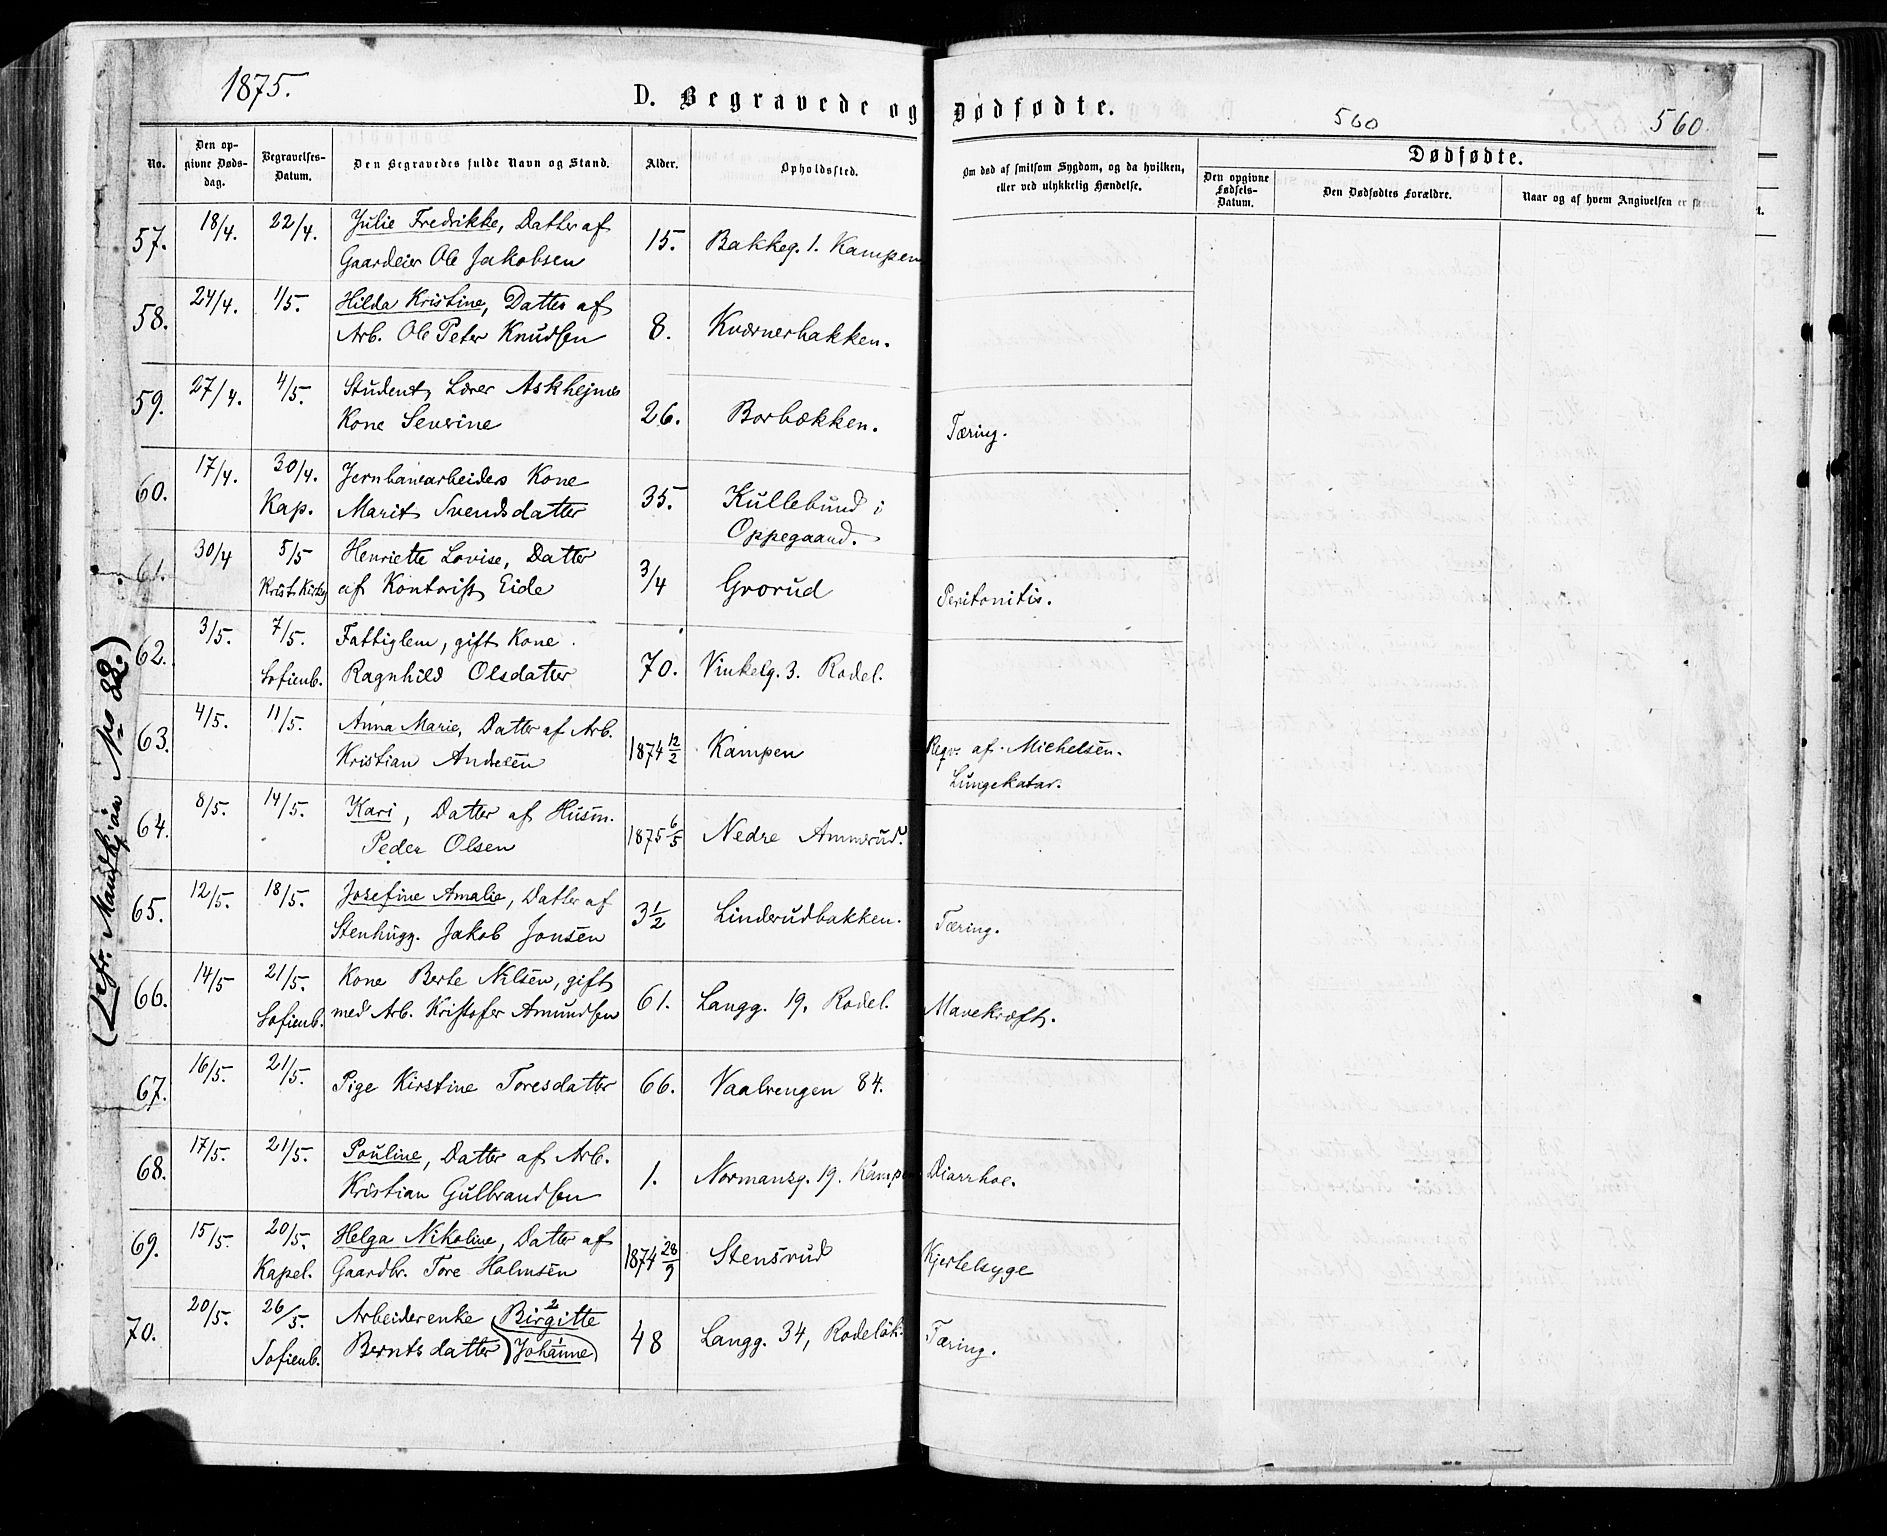 1875.
D. Begravede og Dødfødte.
560
560
No.
Den opgivne Dødsdag.
Begravelses-Datum.
Den Begravedes fulde Navn og Stand.
Alder.
Opholdssted.
Om død af smitsom Sygdom, og da hvilken, eller ved ulykkelig Hændelse.
Dødfødte.
Den opgivne Fødsels-Datum.
Den Dødfødtes Forældre.
Naar og af hvem Angivelsen er
57. 18/4. 22/4. Julie Fredrikke, Datter af 15. Bakkeg. 1. Kampen
Gaardeier Ole Jakobsen
58. 24/4. 1/5. Hilda Kristine, Datter af 8. Kværnerbakken.
Arb. Ole Peter Knudsen
59. 27/4. 4/5. Student, Lærer Askhejms 26. Borbækken. Tæring.
Kone Severine
60. 17/4. 30/4. Jernbanearbeiders Kone 35. Kullebund i
Kap. Marit Svendsdatter Oppegaard.
61. 30/4 5/5 Henriette Lovise, Datter 3/4 Grorud Peritonitis.
Krist. Kirkeg af Kontorist Eide
62. 3/5. 7/5. Fattiglem, gift Kone 70. Vinkelg. 3. Rodel.
Sofienb. Ragnhild Olsdatter
63. 4/5. 11/5. Anna Marie, Datter af Arb. 1874 12/2 Kampen Regv. af Michelsen.
Kristian Andesen Lungekatar.
64. 8/5. 14/5. Kari, Datter af Husm. 1875 6/5 Nedre Ammerud.
Peder Olsen
65. 12/5. 18/5. Josefine Amalie, Datter af 3 1/2 Linderudbakken. Tæring.
Stenhugg. Jakob Jonsen
66. 14/5 21/5. Kone Berte Nilsen, gift 61. Langg. 19. Rodel. Mavekræft.
Sofienb. med Arb. Kristofer Amundsen
67. 16/5. 21/5. Pige Kirstine Toresdatter 66. Vaalrengen 84.
68. 17/5. 21/5. Pouline, Datter af Arb. 1. Normansg. 19. Kampen Diarrhoe.
Kristian Gulbrandsen
69. 15/5. 20/5. Helga Nikoline, Datter af 1874 28/9 Stensrud Kjertelsyge
Kapel. Gaardbr. Tore Halmsen
70. 20/5. 26/5. Arbeiderenke Birgitte 2 48 Langg. 34, Rodeløk. Tæring.
Sofienb. Berntsdatter (Johanne) 1
(Jefr. Mandkjøn No 82.)